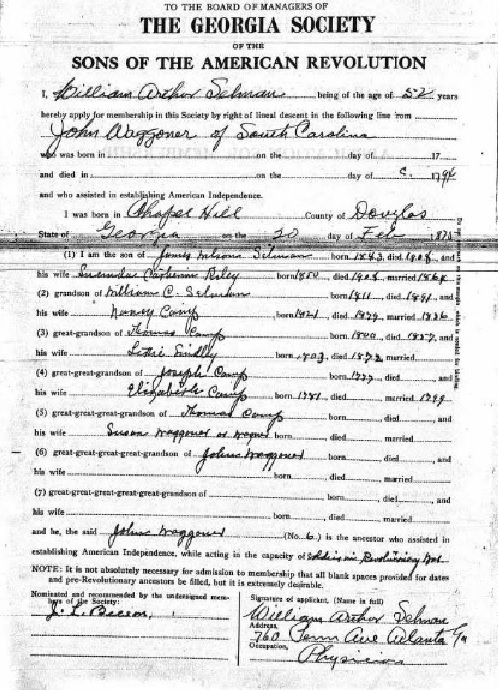 TO THE BOARD OF MANAGERS OF
THE GEORGIA SOCIETY
OF THE
SONS OF THE AMERICAN REVOLUTION
I, William Arthur Selman being of the age of 52 years
hereby apply for membership in this Society by right of lineal descent in the following line from
John Waggoner of South Carolina
who was born in on the day of 17
and died in on the day of 179
and who assisted in establishing American Independence.
I was born in Chapel Hill County of Douglas
State of Georgia on the 20 day of Feb 187
(1) I am the son of James Selman born 1843, died 1908, and
his wife Catherine Riley born 1850, died 1908, married 1868
(2) grandson of William C. Selman born 1811, died 1891, and
his wife Nancy Camp born 1821, died 1879, married 1836
(3) great-grandson of Thomas Camp born 1800, died 1857, and
his wife born 1803, died married
(4) great-great-grandson of Joseph Camp born died and
his wife Elizabeth Camp born 1781, died married 1799
(5) great-great-great-grandson of Thomas Camp born died and
his wife Susan Waggoner or Wagner born died married
(6) great-great-great-grandson of John Waggoner born died and
his wife born died married
(7) great-great-great-great-grandson of born died and
his wife born died married
and he, the said John Waggoner (No. 6) is the ancestor who assisted in
establishing American Independence, while acting in the capacity of Soldier in Revolutionary War.
NOTE: It is not absolutely necessary for admission to membership that all blank spaces provided for dates
and pre-Revolutionary ancestors be filled, but it is extremely desirable.
Nominated and recommended by the undersigned members of the Society:
J. L. Beeson
Signature of applicant. (Name in full)
William Arthur Selman
Address,
760 Penn Ave Atlanta Ga
Occupation,
Physician